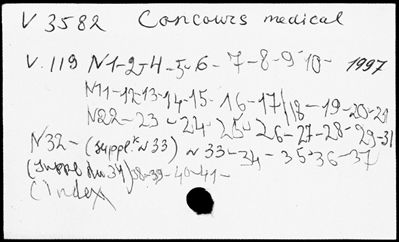 V 3582 Concours medical
V. 119 N1-2-4-5-6-7-8-9-10- 1997
N11-12-13-14-15-16-17/18-19-20-21
N22-23-24-25-26-27-28-29-31
N32-(suppl.t N33) N 33-34-35-36-37
(suppl au 34) 38-39-40-41-
(Index)